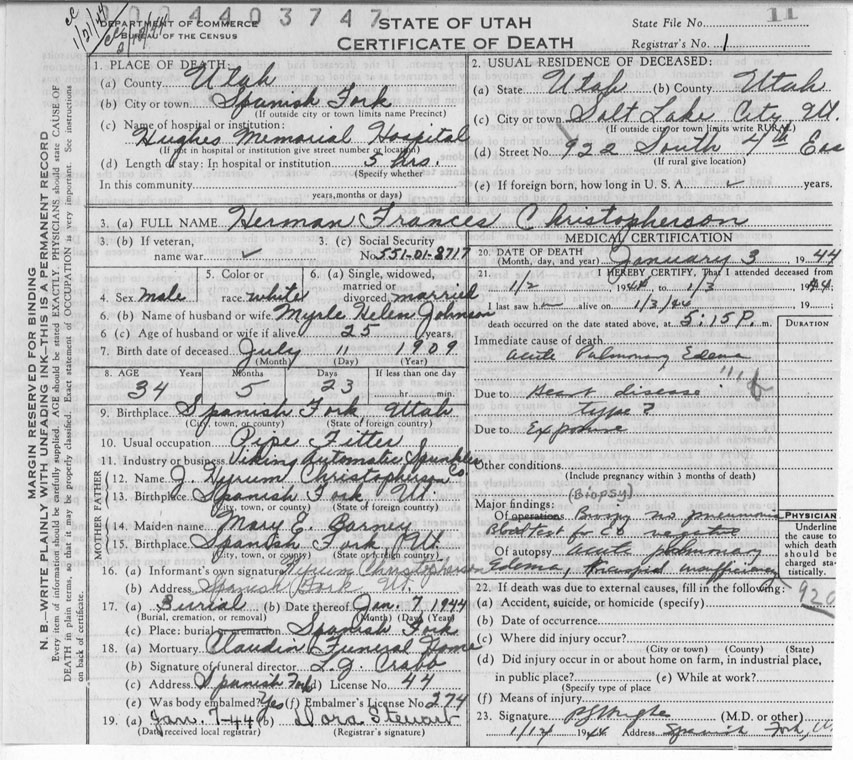 0044403747
cc 1/21/44
DEPARTMENT OF COMMERCE
BUREAU OF THE CENSUS
STATE OF UTAH
CERTIFICATE OF DEATH
State File No. 11
Registrar's No. 1
MARGIN RESERVED FOR BINDING
N. B.—WRITE PLAINLY WITH UNFADING INK—THIS IS A PERMANENT RECORD
Every item of information should be carefully supplied. AGE should be stated EXACTLY. PHYSICIANS should state CAUSE OF
DEATH in plain terms, so that it may be properly classified. Exact statement of OCCUPATION is very important. See instructions
on back of certificate.
1. PLACE OF DEATH:
(a) County Utah
(b) City or town Spanish Fork
(If outside city or town limits name Precinct)
(c) Name of hospital or institution:
Hughes Memorial Hospital
(If not in hospital or institution give street number or location)
(d) Length of stay: In hospital or institution 5 hrs.
(Specify whether
In this community
years, months or days)
2. USUAL RESIDENCE OF DECEASED:
(a) State Utah (b) County Utah
(c) City or town Salt Lake City, Ut.
(If outside city or town limits write RURAL)
(d) Street No. 922 South 4th Eas
(If rural give location)
(e) If foreign born, how long in U. S. A. ✓ years.
3. (a) FULL NAME Herman Frances Christopherson
3. (b) If veteran,
name war ✓
3. (c) Social Security
No. 551-01-8717
4. Sex male
5. Color or
race white
6. (a) Single, widowed,
married or
divorced married
6. (b) Name of husband or wife Myrle Helen Johnson
6. (c) Age of husband or wife if alive 25 years.
7. Birth date of deceased July 11 1909
(Month) (Day) (Year)
8. AGE Years Months Days If less than one day
34 5 23 hr. min.
9. Birthplace Spanish Fork Utah
(City, town, or county) (State of foreign country)
10. Usual occupation Pipe Fitter
11. Industry or business Viking Automatic Sprinkler Co.
FATHER
12. Name J. Hyrum Christopherson
13. Birthplace Spanish Fork Ut.
(City, town, or county) (State of foreign country)
MOTHER
14. Maiden name Mary E. Barney
15. Birthplace Spanish Fork Ut.
(City, town, or county) (State of foreign country)
16. (a) Informant's own signature Hyrum Christopherson
(b) Address Spanish Fork Ut.
17. (a) Burial (b) Date thereof Jan. 7 1944
(Burial, cremation, or removal) (Month) (Day) (Year)
(c) Place: burial or cremation Spanish Fork
18. (a) Mortuary Claudin Funeral Home
(b) Signature of funeral director L. J. Crabb
(c) Address Spanish Fork (d) License No. 44
(e) Was body embalmed? Yes (f) Embalmer's License No. 274
19. (a) Jan. 7-44 (b) Dora Stewart
(Date received local registrar) (Registrar's signature)
MEDICAL CERTIFICATION
20. DATE OF DEATH January 3 1944
(Month, day, and year)
21. I HEREBY CERTIFY, That I attended deceased from
1/2 1944, to 1/3 1944.
I last saw h alive on 1/3/44 19 ;
death occurred on the date stated above, at 5:15 P. m.
DURATION
Immediate cause of death
Acute Pulmonary Edema
Due to Heart disease
type?
Due to Exposure
Other conditions
(Include pregnancy within 3 months of death)
(Biopsy)
Major findings:
Of operations Biopsy no pneumonia
Blood test for CO negative
Of autopsy Acute pulmonary
Edema, Tricuspid insufficiency
PHYSICIAN
Underline
the cause to
which death
should be
charged sta-
tistically.
22. If death was due to external causes, fill in the following: 920
(a) Accident, suicide, or homicide (specify)
(b) Date of occurrence
(c) Where did injury occur?
(City or town) (County) (State)
(d) Did injury occur in or about home on farm, in industrial place,
in public place? (e) While at work?
(Specify type of place
(f) Means of injury
23. Signature (M.D. or other)
1/14 1944 Address Spanish Fork, U.